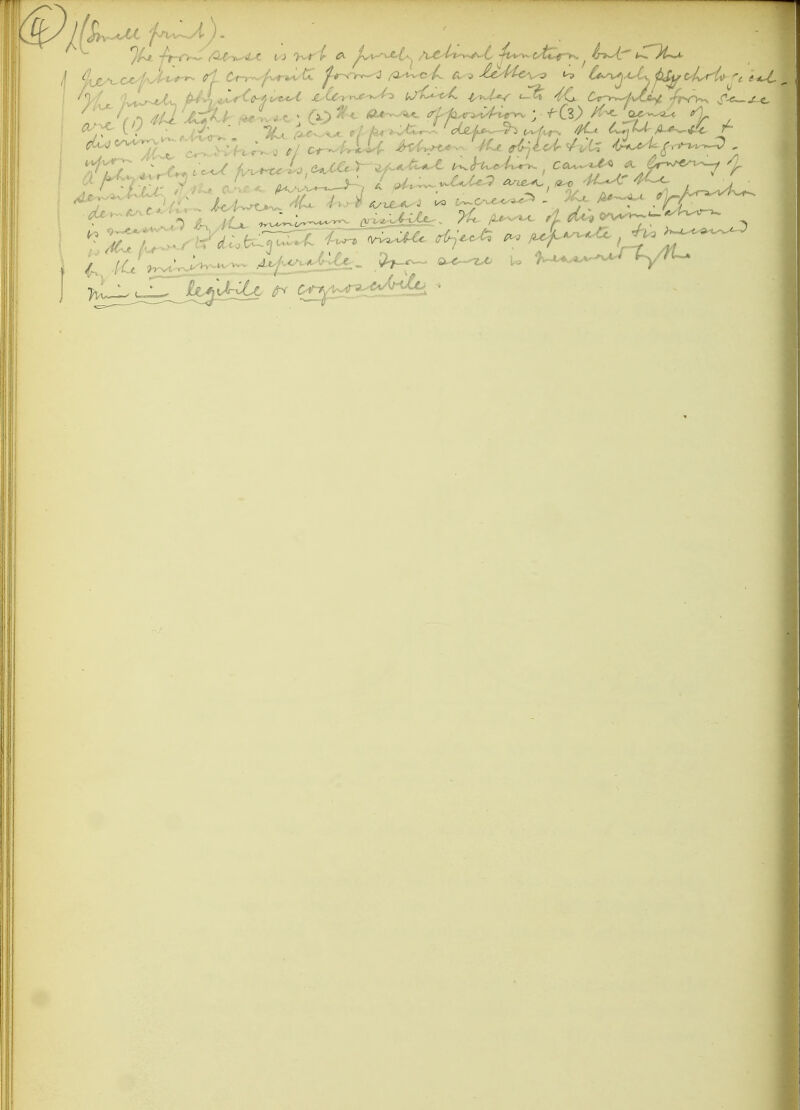 (4) (Small print).
The form sense is not a purely retinal function, but in the
perception of composite forms such as letters is largely psychological.
The purely physiological elements which enter into the complex form sense
are (1) the light sense; (2) the sense of position; & (3) the sense of
discrimination. The sense of position depends upon the light sense &
upon the conditions of contrast between the object & its background.
A physiological process, called spatial induction, causes a lowering of
sensibility of the area surrounding a stimulated area, so that the
demarcation between the two areas is increased. The sense of position
is measured by the minimum visibile. The sense of discrimination
is the power to distinguish two visible objects as separate, & is measured
by the minimum separabile. Form sense is measured by the
minimum legibile or cognoscibile.